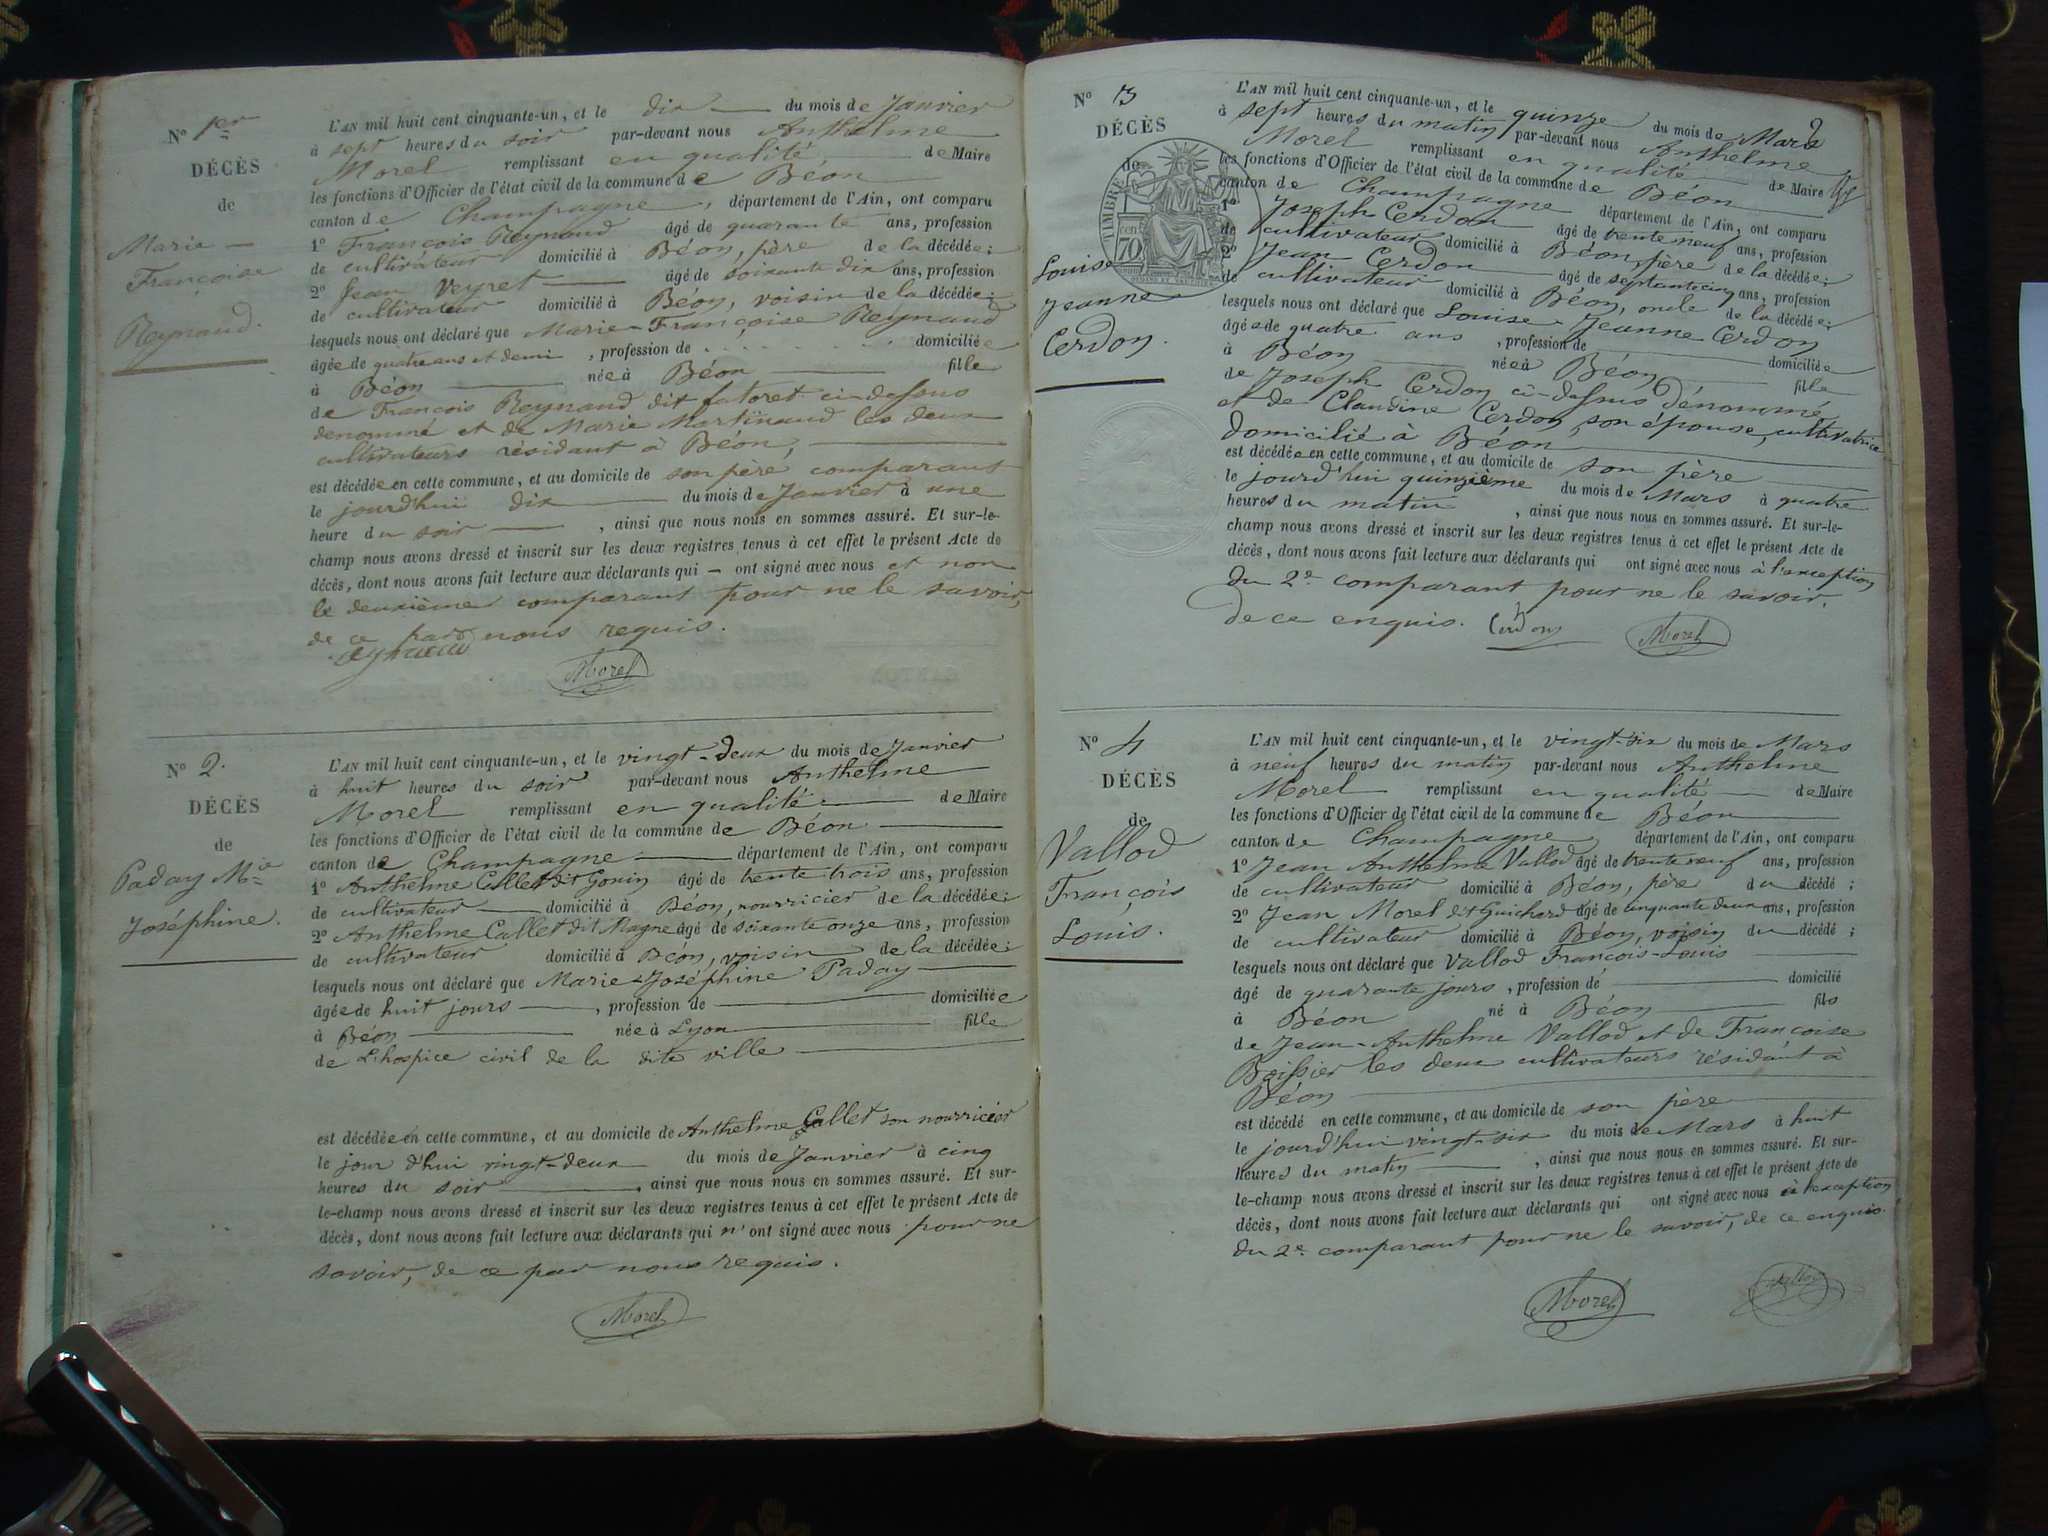 N° 1er
DÉCÈS
de
Marie
Françoise
Reynaud.
L'AN mil huit cent cinquante-un, et le dix du mois de Janvier
à sept heures du soir par-devant nous Anthelme
Morel remplissant en qualité de Maire
les fonctions d'Officier de l'état civil de la commune de Béon
canton de Champagne, département de l'Ain, ont comparu
1° François Reynaud âgé de quarante ans, profession
de cultivateur domicilié à Béon, père de la décédée;
2° Jean Veyret âgé de soixante dix ans, profession
de cultivateur domicilié à Béon, voisin de la décédée;
lesquels nous ont déclaré que Marie-Françoise Reynaud
âgée de quatre ans et demi, profession de domiciliée
à Béon née à Béon fille
de François Reynaud dit ci-dessus
denommé et de Marie Martinaud les deux
cultivateurs résidant à Béon,
est décédée en cette commune, et au domicile de son père comparant
le jourd'hui dix du mois de Janvier à une
heure du soir, ainsi que nous nous en sommes assuré. Et sur-le-
champ nous avons dressé et inscrit sur les deux registres tenus à cet effet le présent Acte de
décès, dont nous avons fait lecture aux déclarants qui – ont signé avec nous et non
le deuxième comparant pour ne le savoir,
de ce par nous requis.
Morel
N° 2.
DÉCÈS
de
Paday Mie
Joséphine.
L'AN mil huit cent cinquante-un, et le vingt-deux du mois de Janvier
à huit heures du soir par-devant nous Anthelme
Morel remplissant en qualité de Maire
les fonctions d'Officier de l'état civil de la commune de Béon
canton de Champagne département de l'Ain, ont comparu
1° Anthelme Callet dit Gonin âgé de trente trois ans, profession
de cultivateur domicilié à Béon, nourricier de la décédée;
2° Anthelme Callet dit Magne âgé de soixante onze ans, profession
de cultivateur domicilié à Béon, voisin de la décédée;
lesquels nous ont déclaré que Marie-Joséphine Paday
âgée de huit jours, profession de domiciliée
à Béon née à Lyon fille
de L'hospice civil de la dite ville
est décédée en cette commune, et au domicile de Anthelme Callet son nourricier
le jour d'hui vingt-deux du mois de Janvier à cinq
heures du soir, ainsi que nous nous en sommes assuré. Et sur-
le-champ nous avons dressé et inscrit sur les deux registres tenus à cet effet le présent Acte de
décès, dont nous avons fait lecture aux déclarants qui n'ont signé avec nous pour ne
savoir, de ce par nous requis.
Morel
2
N° 3
DÉCÈS
de
TIMBRE
70
Louise
Jeanne
Cerdon.
L'AN mil huit cent cinquante-un, et le quinze du mois de Mars
à sept heures du matin par-devant nous Anthelme
Morel remplissant en qualité de Maire
les fonctions d'Officier de l'état civil de la commune de Béon
canton de Champagne département de l'Ain, ont comparu
1° Joseph Cerdon âgé de trente neuf ans, profession
de cultivateur domicilié à Béon, père de la décédée;
2° Jean Cerdon âgé de septante cinq ans, profession
de cultivateur domicilié à Béon, oncle de la décédée;
lesquels nous ont déclaré que Louise Jeanne Cerdon
âgée de quatre ans, profession de domiciliée
à Béon née à Béon fille
de Joseph Cerdon ci-dessus dénommé
et de Claudine Cerdon, son épouse, cultivatrice
domicilié à Béon
est décédée en cette commune, et au domicile de son père
le jourd'hui quinzième du mois de Mars à quatre
heures du matin, ainsi que nous nous en sommes assuré. Et sur-le-
champ nous avons dressé et inscrit sur les deux registres tenus à cet effet le présent Acte de
décès, dont nous avons fait lecture aux déclarants qui ont signé avec nous à l'exception
du 2e comparant pour ne le savoir,
de ce enquis. Cerdon Morel
N° 4
DÉCÈS
de
Vallod
François
Louis.
L'AN mil huit cent cinquante-un, et le vingt-six du mois de Mars
à neuf heures du matin par-devant nous Anthelme
Morel remplissant en qualité de Maire
les fonctions d'Officier de l'état civil de la commune de Béon
canton de Champagne département de l'Ain, ont comparu
1° Jean Anthelme Vallod âgé de trente neuf ans, profession
de cultivateur domicilié à Béon, père du décédé;
2° Jean Morel dit Guichard âgé de cinquante deux ans, profession
de cultivateur domicilié à Béon, voisin du décédé;
lesquels nous ont déclaré que Vallod François-Louis
âgé de quarante jours, profession de domicilié
à Béon né à Béon fils
de Jean-Anthelme Vallod et de Françoise
Boissier les deux cultivateurs résidant à
Béon
est décédé en cette commune, et au domicile de son père
le jourd'hui vingt-six du mois de Mars à huit
heures du matin, ainsi que nous nous en sommes assuré. Et sur-
le-champ nous avons dressé et inscrit sur les deux registres tenus à cet effet le présent Acte de
décès, dont nous avons fait lecture aux déclarants qui ont signé avec nous à l'exception
du 2e comparant pour ne le savoir, de ce enquis.
Morel Vallod